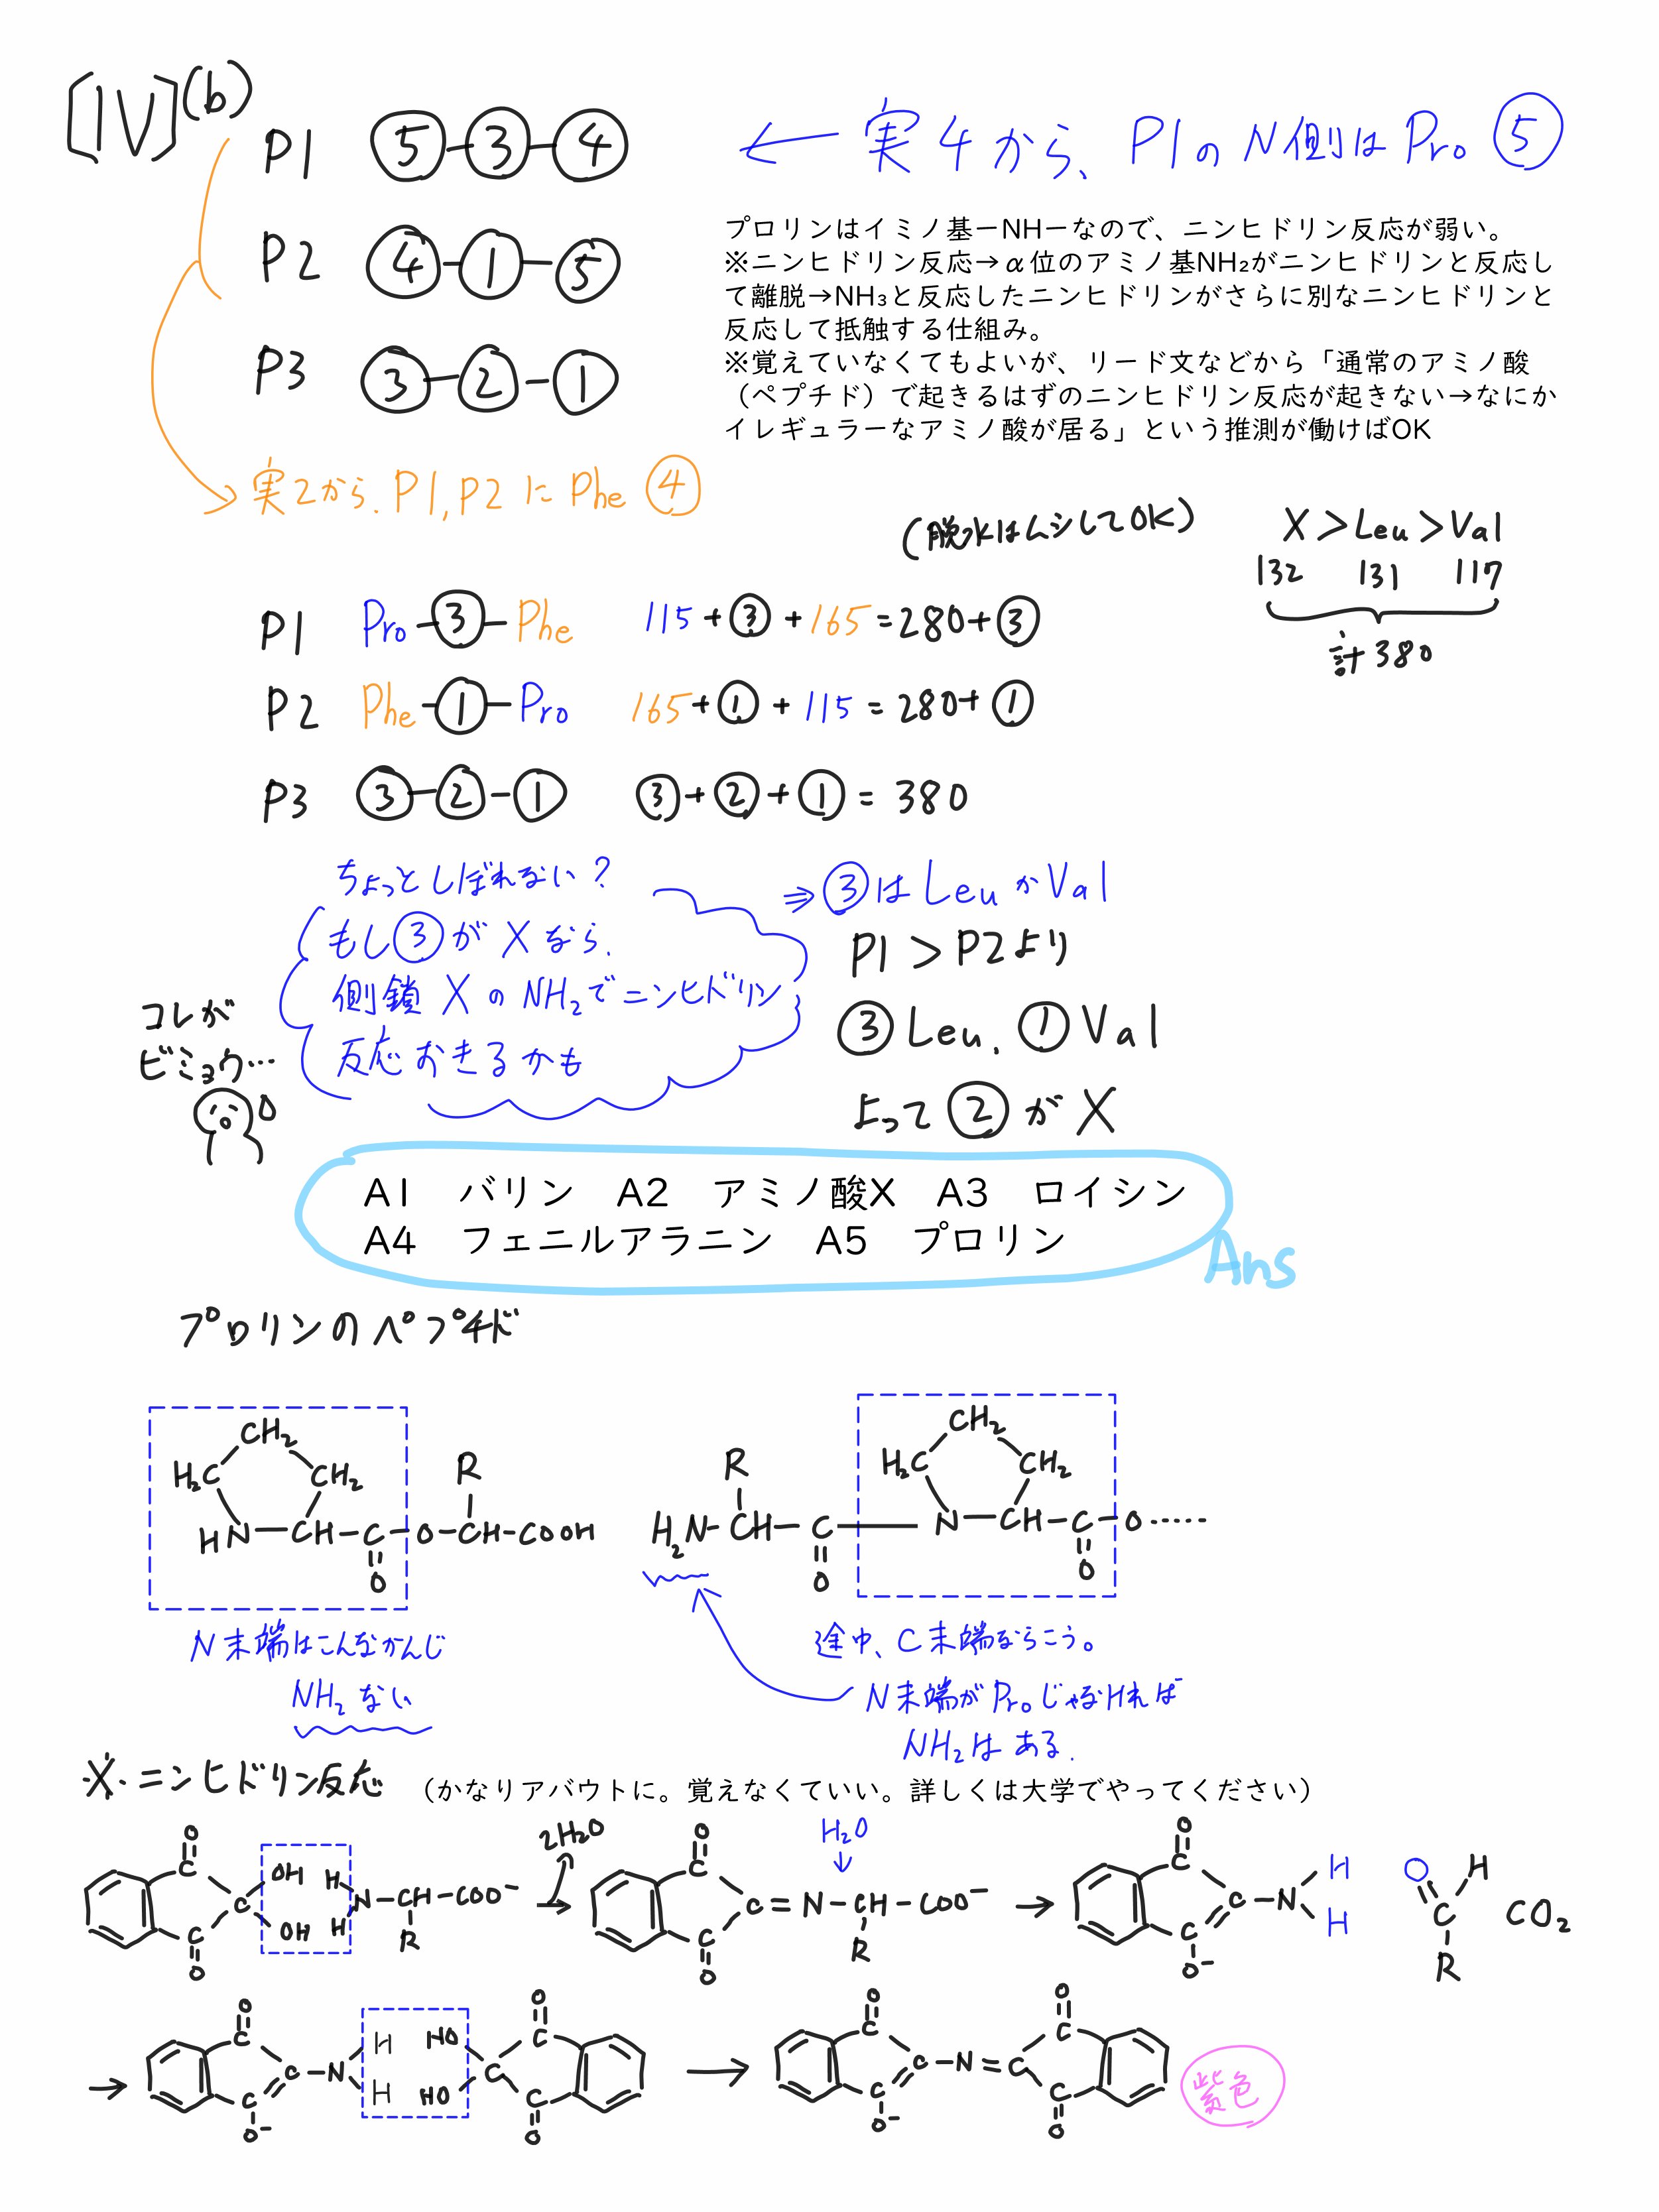 [IV](b)
P1 ⑤-③-④ ← 実4から、P1のN側はPro ⑤
P2 ④-①-⑤
P3 ③-②-①
プロリンはイミノ基ーNHーなので、ニンヒドリン反応が弱い。
※ニンヒドリン反応→α位のアミノ基NH₂がニンヒドリンと反応し
て離脱→NH₃と反応したニンヒドリンがさらに別なニンヒドリンと
反応して抵触する仕組み。
※覚えていなくてもよいが、リード文などから「通常のアミノ酸
（ペプチド）で起きるはずのニンヒドリン反応が起きない→なにか
イレギュラーなアミノ酸が居る」という推測が働けばOK
→ 実2から、P1,P2にPhe ④
(脱水はムシしてOK)
X>Leu>Val
132 131 117
計380
P1 Pro-③-Phe 115+③+165=280+③
P2 Phe-①-Pro 165+①+115=280+①
P3 ③-②-① ③+②+①=380
ちょっとしぼれない？
もし③がXなら、
側鎖XのNH₂でニンヒドリン
反応おきるかも
コレが
ビミョウ…
⇒ ③はLeuかVal
P1>P2より
③Leu、①Val
よって②がX
A1　バリン　A2　アミノ酸X　A3　ロイシン
A4　フェニルアラニン　A5　プロリン
Ans
プロリンのペプチド
CH₂
H₂C CH₂ R
HN-CH-C-O-CH-COOH
O
N末端はこんなかんじ
NH₂ない
CH₂
R H₂C CH₂
H₂N-CH-C-N-CH-C-O……
O O
途中、C末端ならこう。
N末端がPro.じゃなければ
NH₂はある.
※ニンヒドリン反応 （かなりアバウトに。覚えなくていい。詳しくは大学でやってください）
O 2H₂O O H₂O O
C OH H C ↓ C H O H
C N-CH-COO⁻ → C=N-CH-COO⁻ → C-N C CO₂
C OH H R C R C H R
O O O⁻
O O O O
C H HO C C C
→ C-N C → C-N=C 紫色
C H HO C C C
O⁻ O O⁻ O